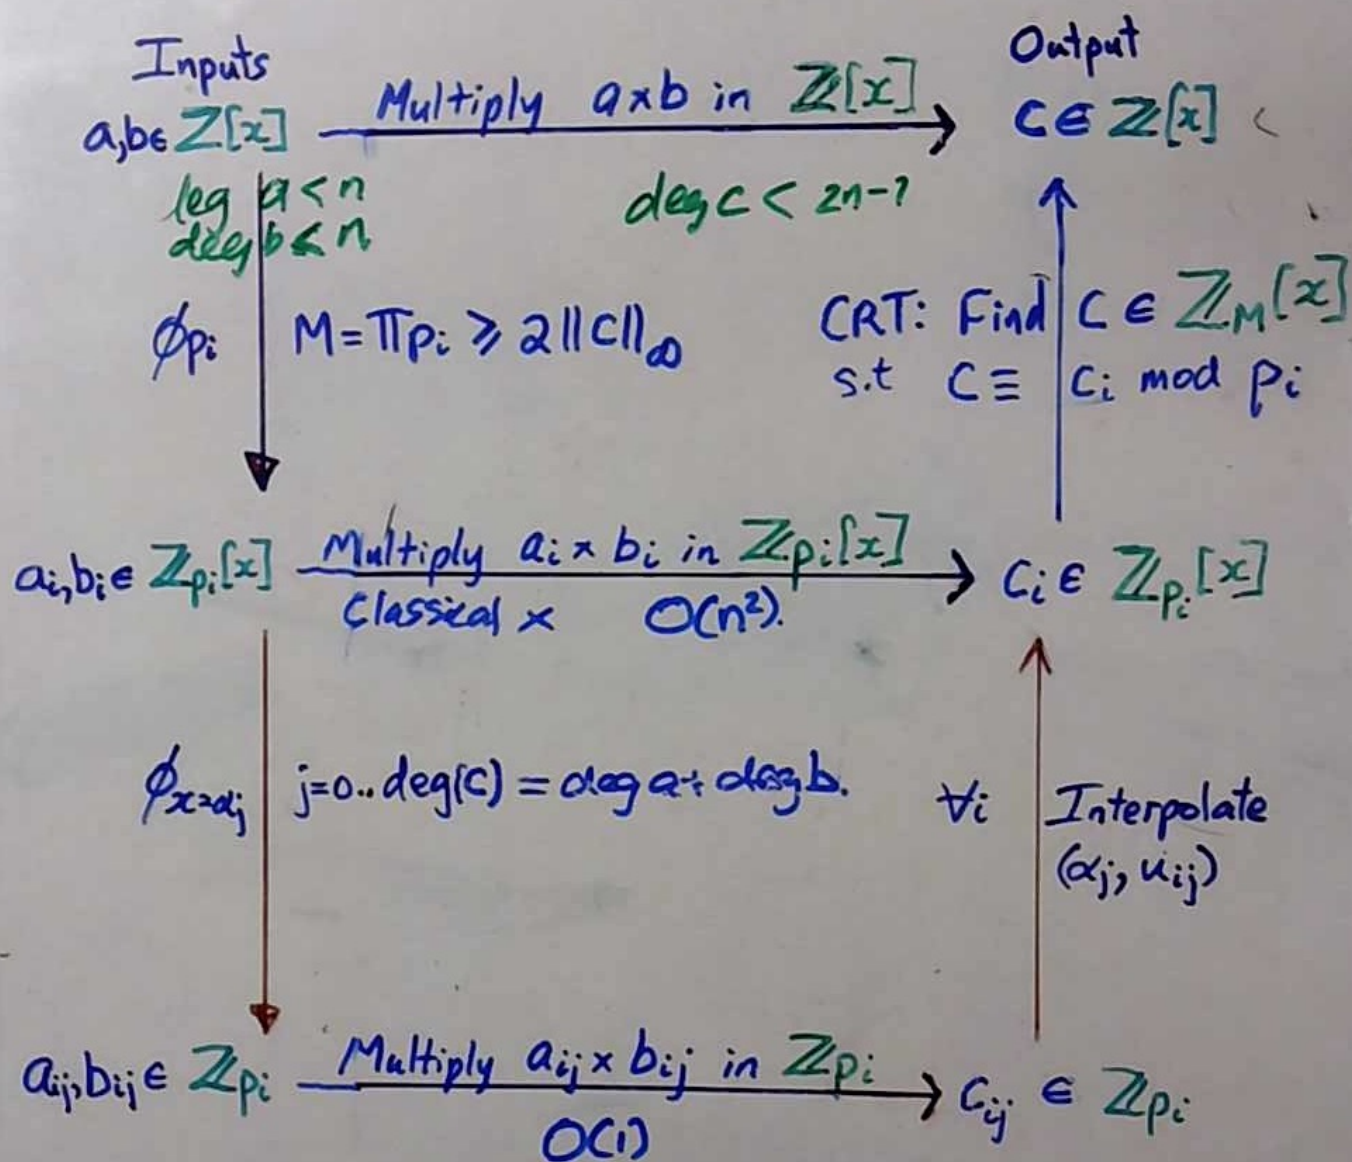 Inputs
Output
a,b∈ Z[x]
Multiply a×b in Z[x]
C ∈ Z[x]
leg a < n
deg b < n
deg c < 2n-1
ϕpi
M = Πpi ⩾ 2||C||∞
CRT: Find C ∈ ZM[x]
s.t C ≡ Ci mod pi
ai,bi∈ Zpi[x]
Multiply ai × bi in Zpi[x]
Classical × O(n²).
Ci ∈ Zpi[x]
ϕx=αj
j=0..deg(C) = deg a + deg b.
∀i
Interpolate
(αj, uij)
aij,bij ∈ Zpi
Multiply aij × bij in Zpi
O(1)
Cij ∈ Zpi